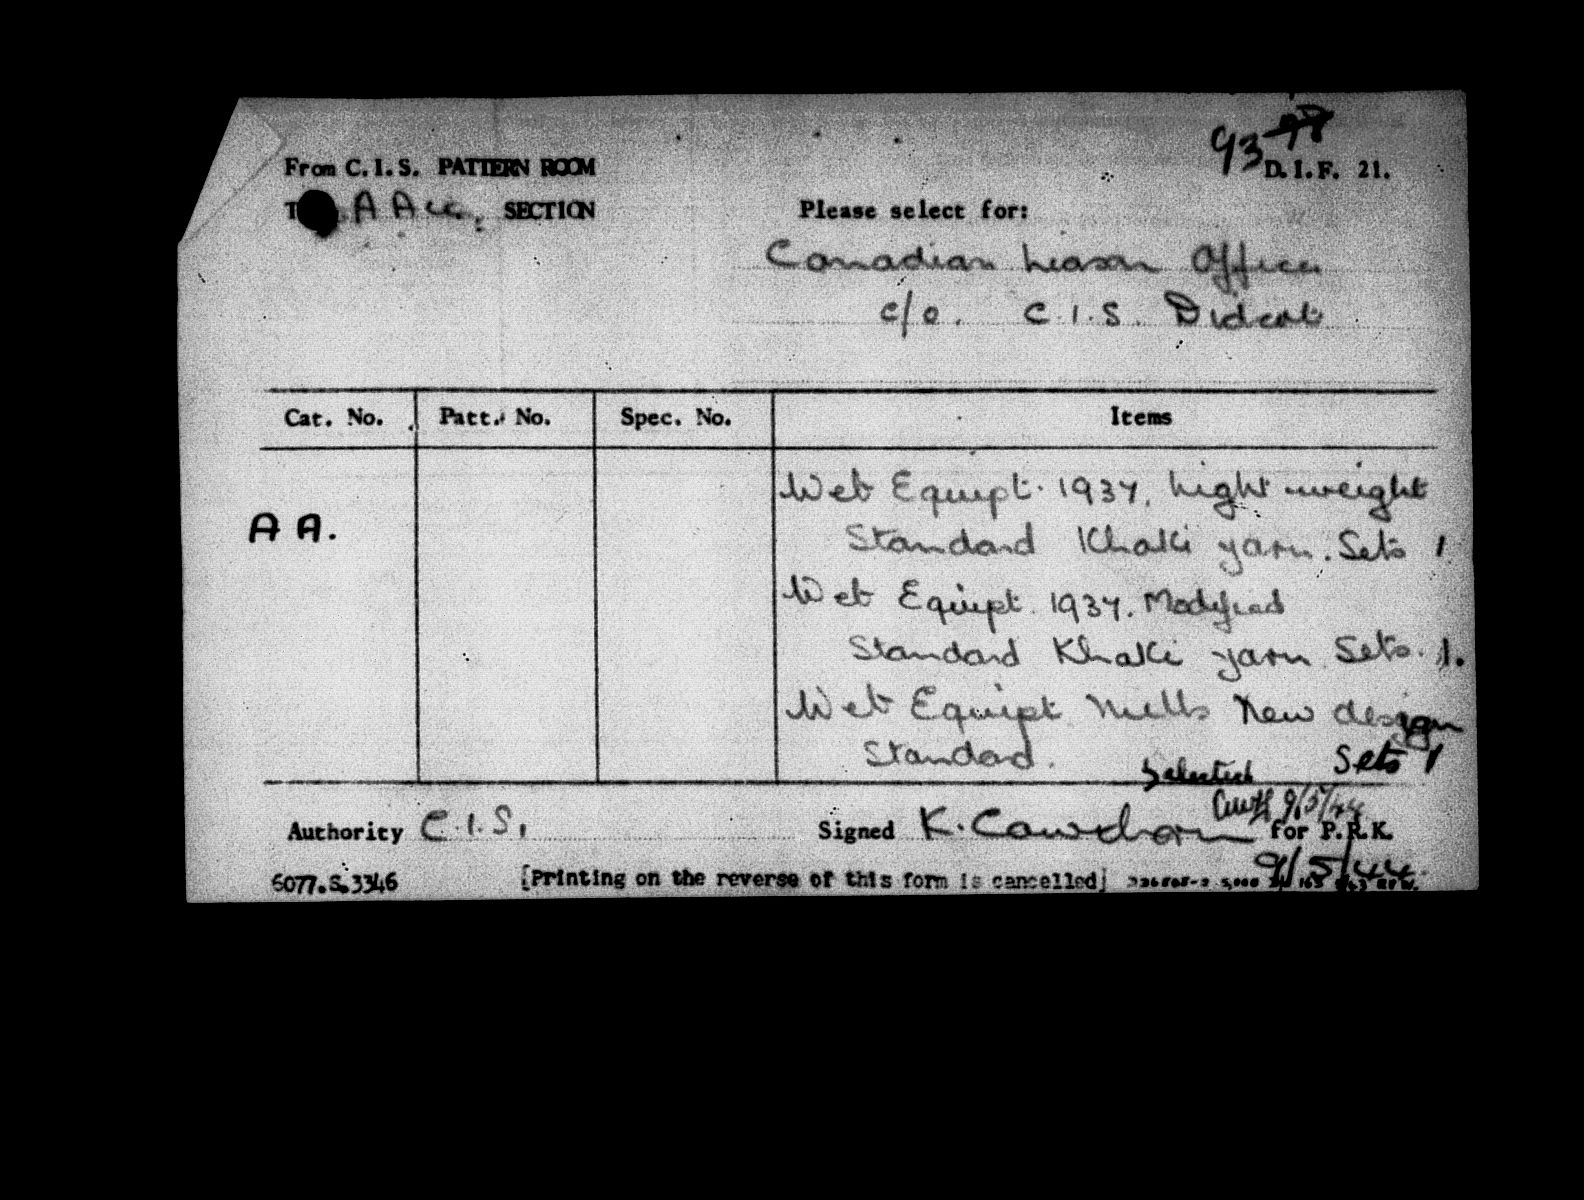 93 98
From C.I.S. PATTERN ROOM D.I.F. 21.
A A SECTION Please select for:
Canadian Liason Officer
c/o. C.I.S. Didcot
Cat. No. Patt. No. Spec. No. Items
Web Equipt. 1937. Light weight
A A.
Standard Khaki yarn. Sets 1
Web Equipt. 1937. Modified
Standard Khaki yarn Sets. 1.
Web Equipt Mills New design
Standard. Sets 1
Selected
9/5/44
Authority C.I.S. Signed K. for P.R.K.
9/5/44
6077.S.3346 [Printing on the reverse of this form is cancelled]